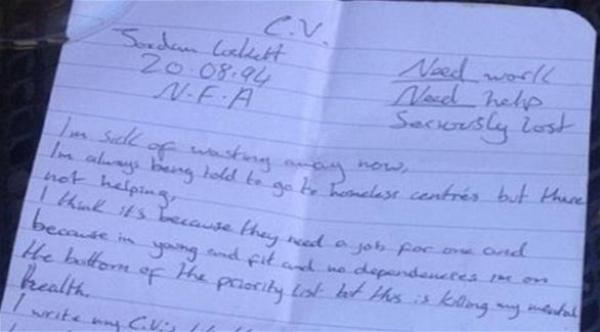 C.V.
Jordan Lockett
20.08.94
N.F.A
Need work
Need help
Seriously lost
Im sick of wasting away now,
Im always being told to go to homeless centres but there
not helping,
I think it's because they need a job for one and
because im young and fit and no dependencies im on
the bottom of the priority list but this is killing my mental
health.
I write my C.V.